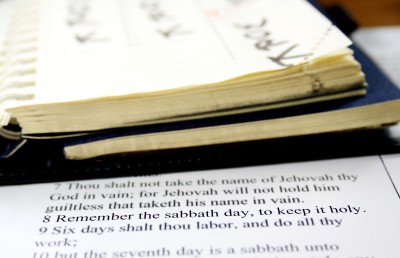 7 Thou shalt not take the name of Jehovah thy
God in vain; for Jehovah will not hold him
guiltless that taketh his name in vain.
8 Remember the sabbath day, to keep it holy.
9 Six days shalt thou labor, and do all thy
work;
10 but the seventh day is a sabbath unto